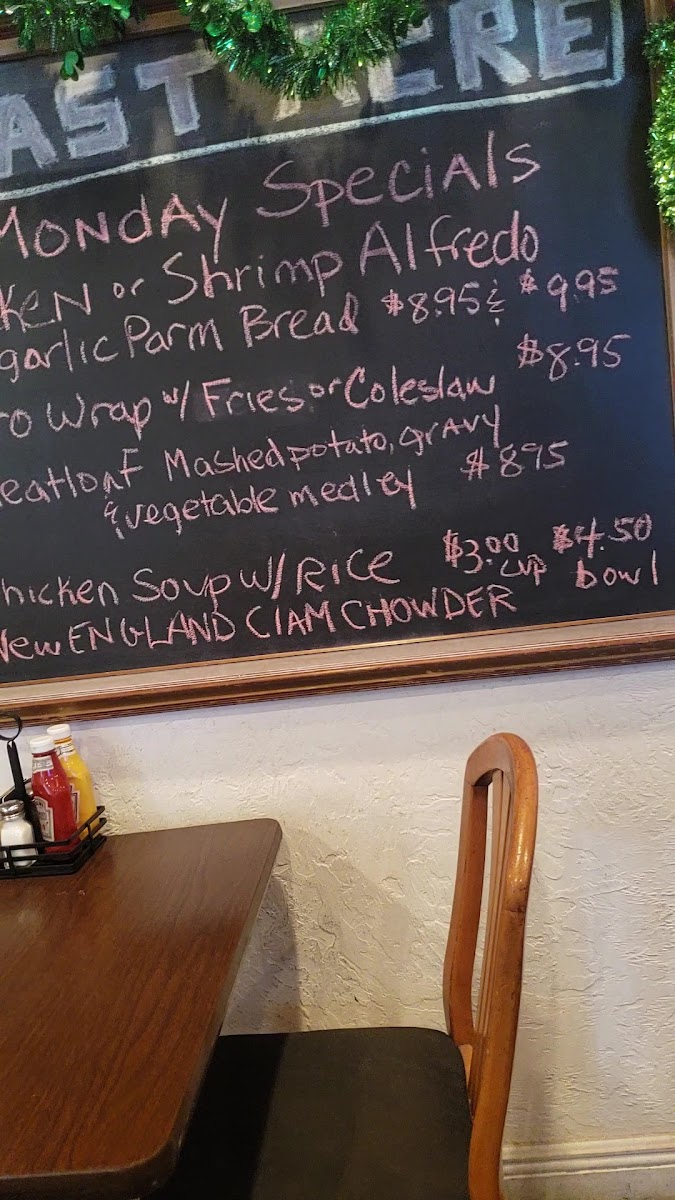 AST HERE
Monday Specials
ken or Shrimp Alfredo
garlic Parm Bread $8.95 & $9.95
ro Wrap w/ Fries or Coleslaw $8.95
eatloaf Mashed potato, gravy
& vegetable medley $8.95
hicken Soup w/ Rice $3.00 cup $4.50 bowl
New ENGLAND ClAM CHOWDER